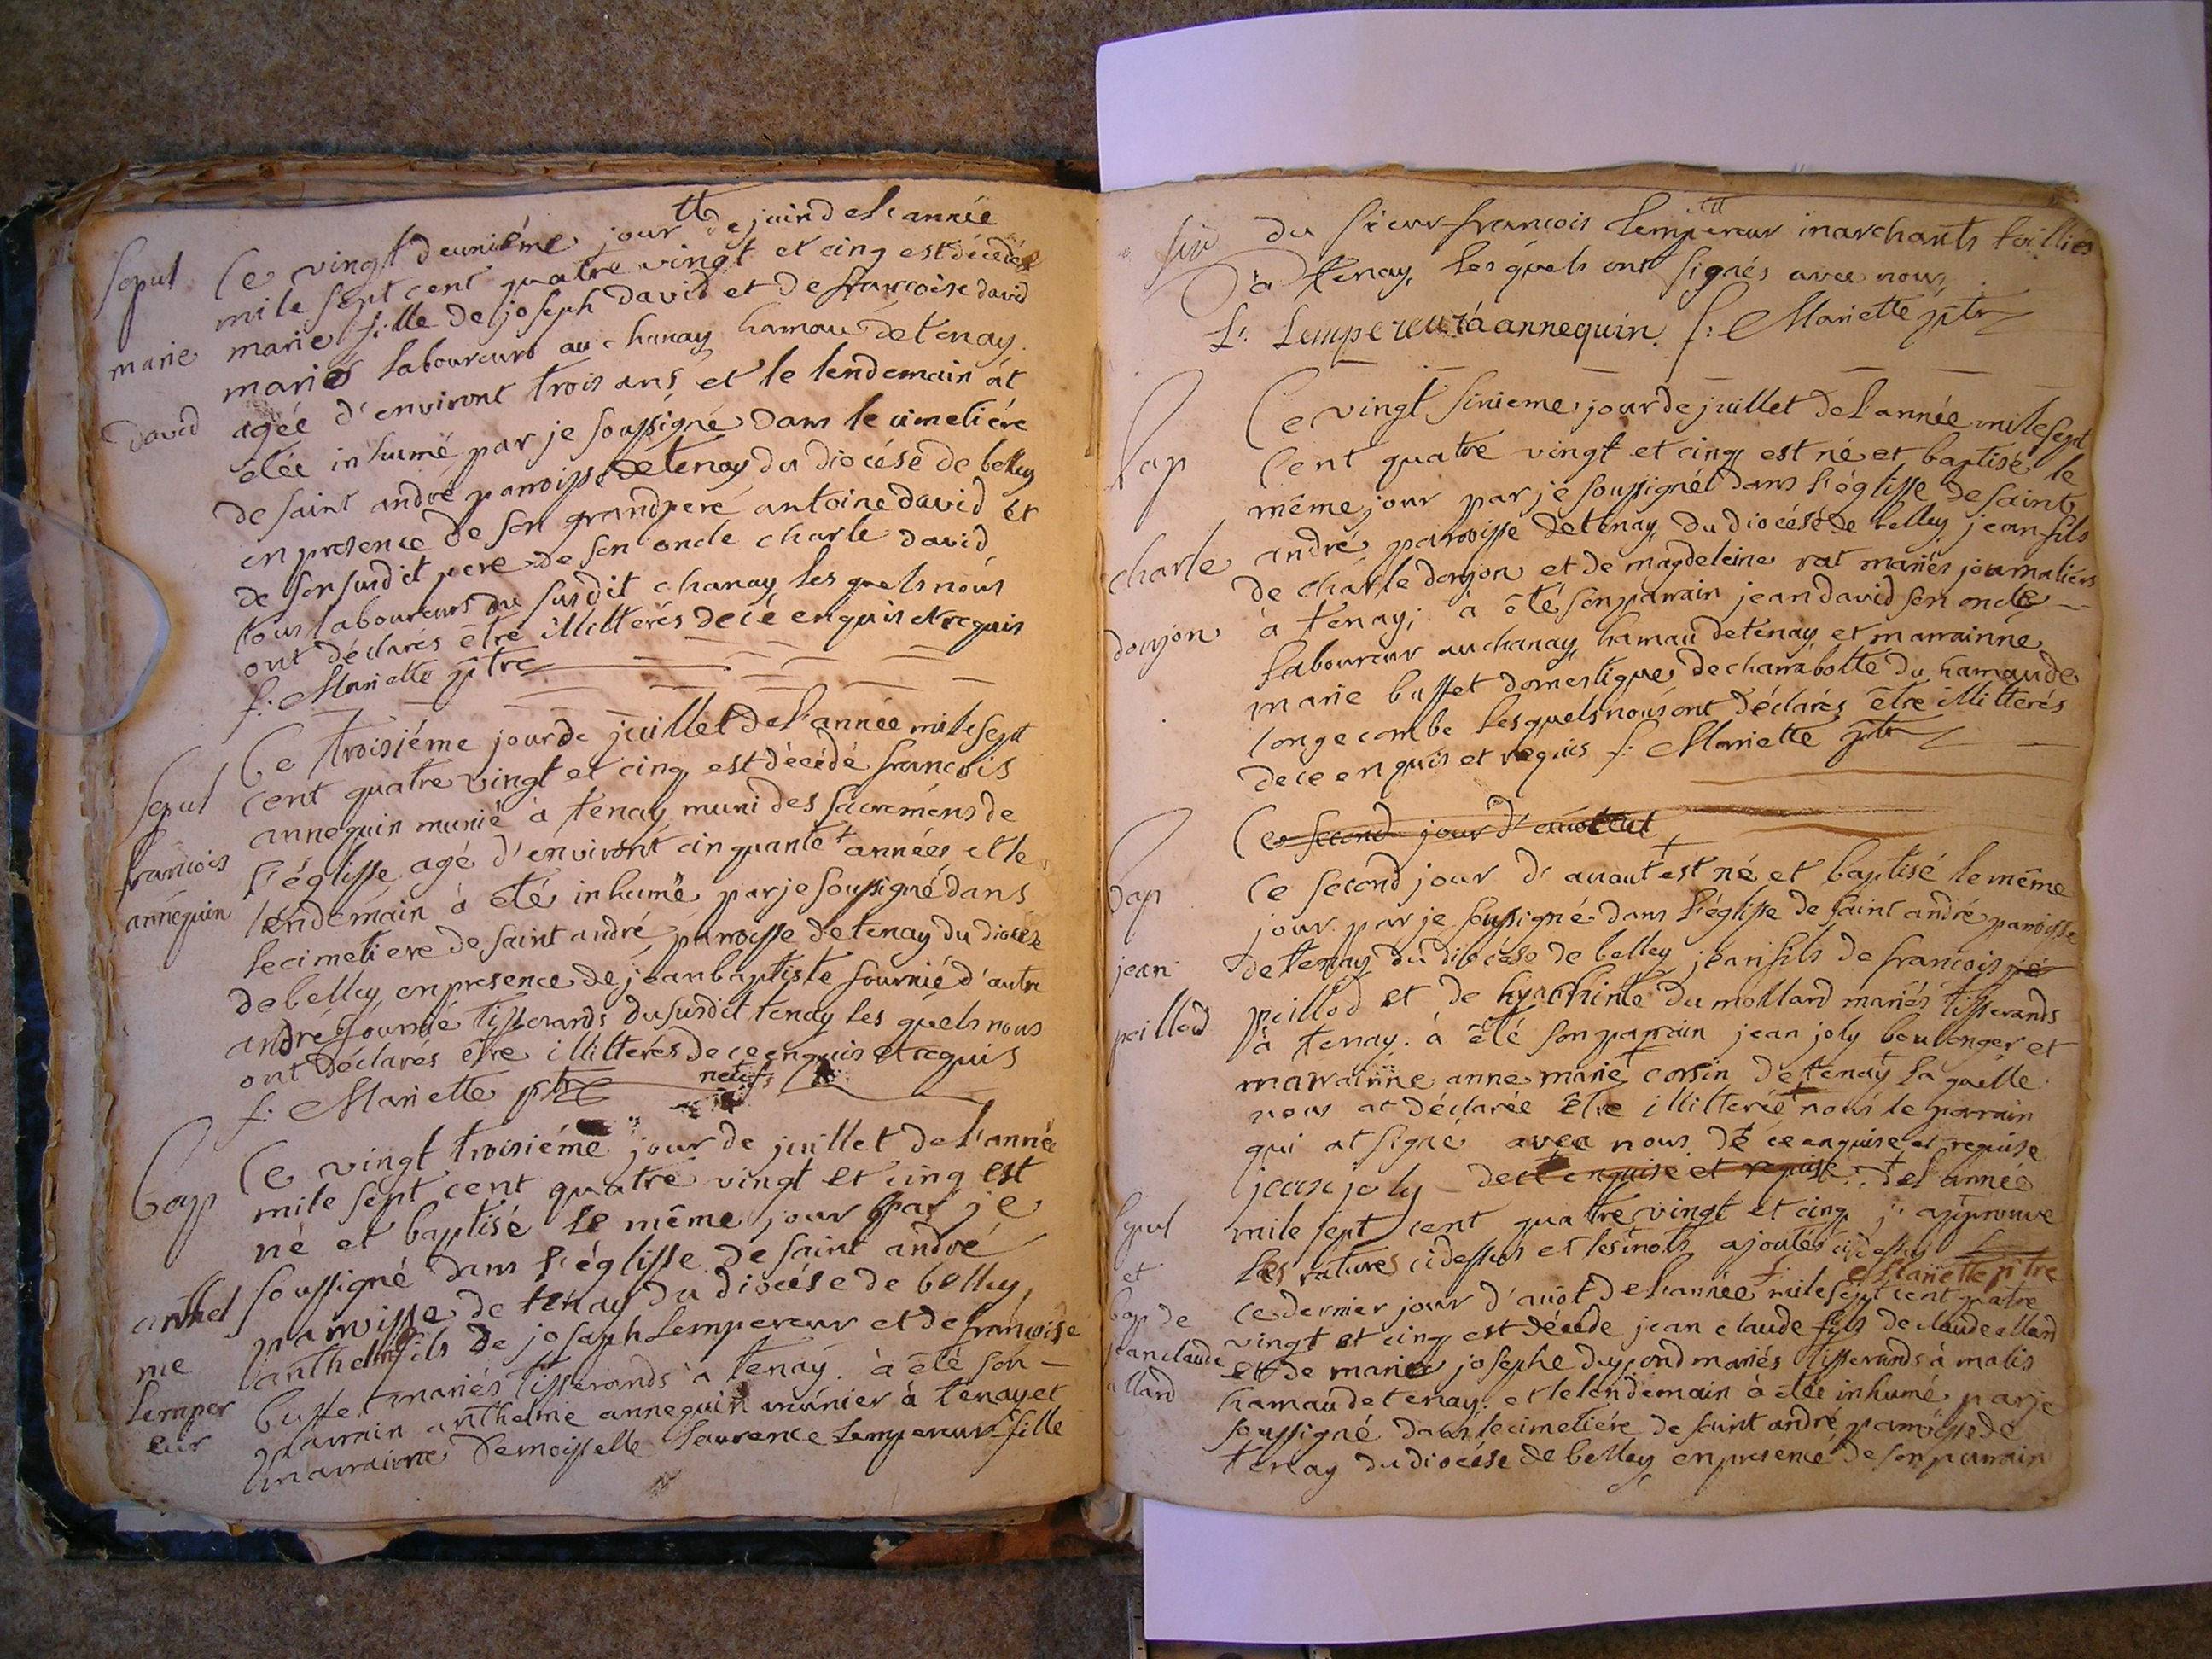 Sepul
Ce vingt deuxiéme jour de juin de l'année
mile sept cent quatre vingt et cinq est décédée
marie
marie fille de joseph David et de francoise david
mariés laboureurs au chanay hamau de tenay.
David
agée d'environt trois ans et le lendemain át
étée inhumé par je soussigné dans le cimetiére
de saint andré parroisse de tenay du diocése de belley
en presence de son grand pere antoine david et
de son susdit pere de son oncle charle david
tous laboureurs du susdit chanay les quels nous
ont déclarés être illittérés de cé enquis et requis
f: Mariette ptre
Sepul
Ce troisiéme jour de juillet de l'année mile sept
cent quatre vingt et cinq est décédé francois
francois
annequin munié à tenay muni des sacremens de
annequin
l'églisse agé d'environt cinquante années et le
lendemain à été inhumé par je soussigné dans
le cimetiere de saint andré parroisse de tenay du diocese
de belley en presence de jean baptiste fournié d'autre
andré fournié tisserands du susdit tenay les quels nous
ont déclarés être illitterés de ce enquis et requis
f: Mariette ptre
Bap
Ce vingt troisiéme jour de juillet de l'année
mile sept cent quatre vingt et cinq est
né et baptisé le même jour par je
soussigné dans l'églisse de saint andré
anthel
parroisse de tenay du diocése de belley
me
anthelme fils de joseph Lempereur et de francoise
Lemper
buffet mariés tisserands à tenay. à été son
eur
parrain anthelme annequin múnier à tenay et
marrainne Demoisselle Laurence Lempereur fille
du sieur francois Lempereur marchants
à tenay, les quels ont signés avec nous
L. Lempereur annequin. f: Mariette ptr
Bap
Ce vingt sixieme jour de juillet de l'année mile sept
cent quatre vingt et cinq est né et baptisé le
même jour par je soussigné dans l'églisse de saint
charle
andré parroisse de tenay du diocésé de belley jean fils
de charle donjon et de magdeleine rat mariés journaliers
donjon
à tenay; à été son parrain jean david son oncle
laboureur au chanay hamau de tenay et marrainne
marie buffet domestique de charrabotte du hamau de
longecombe lesquels nous ont déclarés être illitterés
de ce enquis et requis f: Mariette ptr
Ce second jour d'
Bap
Ce second jour d'auout est né et baptisé le même
jour par je soussigné dans l'églisse de saint andré parroisse
jean
de tenay du diocése de belley jean fils de francois pe
peillod
peillod et de hyachinte du mollard mariés tisserands
à tenay. à été son parrain jean joly boulonger et
marrainne anne marie corsin de tenay la quelle
nous at déclarée être illiterée nous le parrain
qui at signé avec nous de ce enquise et requise
jean joly de ce enquise et requise. de l'année
Sepul
mile sept cent quatre vingt et cinq j: approuve
et
les ratures cidessus et les mots ajoutés cidessus
f. Mariette ptre
bap de
ce dernier jour d'auöt de l'année mile sept cent quatre
jean claude
vingt et cinq est décédé jean claude fils de claude allard
allard
et de marie josephe dupond mariés tisserands à malis
hamau de tenay; et le lendemain à été inhumé par je
soussigné dans le cimetiére de saint andré parroisse de
tenay du diocése de belley en presence de son parrain